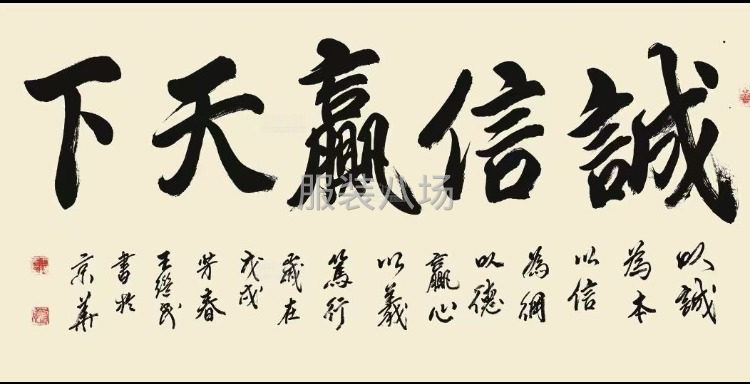 誠信贏天下
以誠
為本
以信
為綱
以德
贏心
以義
篤行
歲在
戊戌
芳春
書於
京華
服装八场